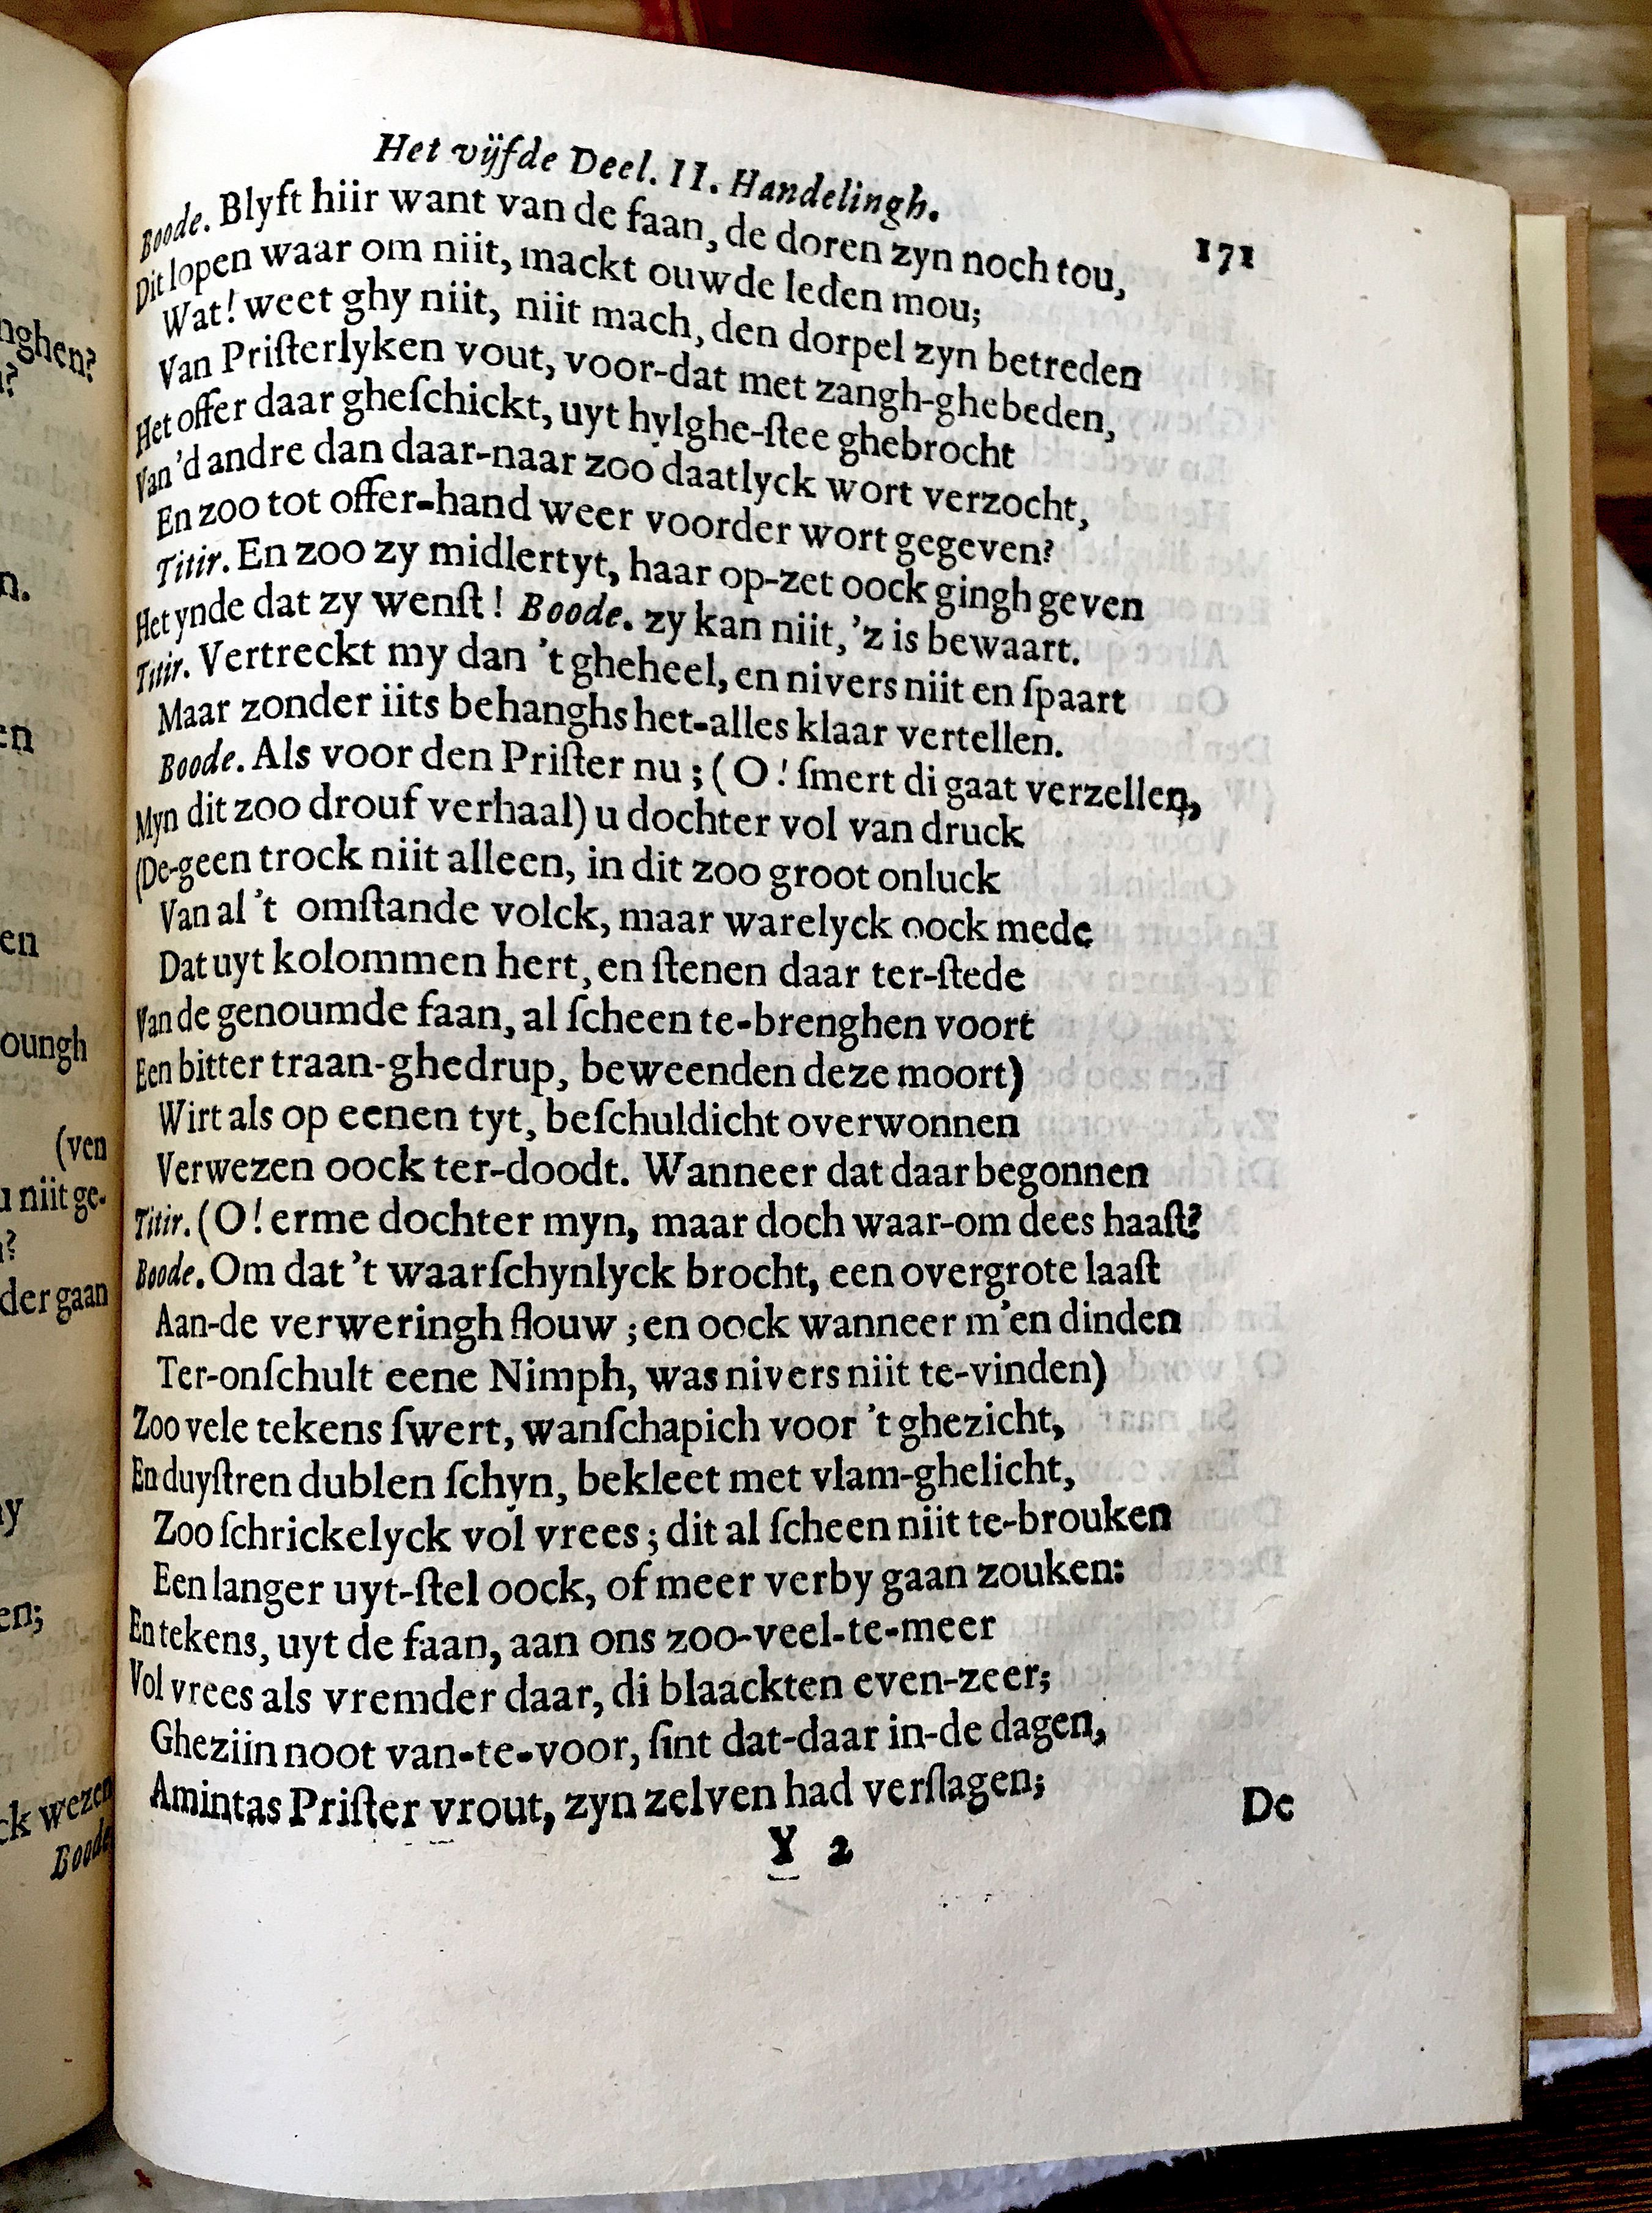 nghen?
n?
n.
en
en
oungh
(ven
niit ge-
?
der gaan
en;
ck wezen
Boode
Het vijfde Deel. II. Handelingh.
171
Boode. Blyft hiir want van de faan, de doren zyn noch tou,
Dit lopen waar om niit, mackt ouwde leden mou;
Wat! weet ghy niit, niit mach, den dorpel zyn betreden
Van Priſterlyken vout, voor-dat met zangh-ghebeden,
Het offer daar gheſchickt, uyt hylghe-ſtee ghebrocht
Van 'd andre dan daar-naar zoo daatlyck wort verzocht,
En zoo tot offer-hand weer voorder wort gegeven?
Titir. En zoo zy midlertyt, haar op-zet oock gingh geven
Het ynde dat zy wenſt! Boode. zy kan niit, 'z is bewaart.
Titir. Vertreckt my dan 't gheheel, en nivers niit en ſpaart
Maar zonder iits behanghs het-alles klaar vertellen.
Boode. Als voor den Priſter nu; (O! ſmert di gaat verzellen,
Myn dit zoo drouf verhaal) u dochter vol van druck
(De-geen trock niit alleen, in dit zoo groot onluck
Van al 't omſtande volck, maar warelyck oock mede
Dat uyt kolommen hert, en ſtenen daar ter-ſtede
Van de genoumde faan, al ſcheen te-brenghen voort
Een bitter traan-ghedrup, beweenden deze moort)
Wirt als op eenen tyt, beſchuldicht overwonnen
Verwezen oock ter-doodt. Wanneer dat daar begonnen
Titir. (O! erme dochter myn, maar doch waar-om dees haaſt?
Boode. Om dat 't waarſchynlyck brocht, een overgrote laaſt
Aan-de verweringh flouw; en oock wanneer m'en dinden
Ter-onſchult eene Nimph, was nivers niit te-vinden)
Zoo vele tekens ſwert, wanſchapich voor 't ghezicht,
En duyſtren dublen ſchyn, bekleet met vlam-ghelicht,
Zoo ſchrickelyck vol vrees; dit al ſcheen niit te-brouken
Een langer uyt-ſtel oock, of meer verby gaan zouken:
En tekens, uyt de faan, aan ons zoo-veel-te-meer
Vol vrees als vremder daar, di blaackten even-zeer;
Gheziin noot van-te-voor, ſint dat-daar in-de dagen,
Amintas Priſter vrout, zyn zelven had verſlagen;
Y 2
De